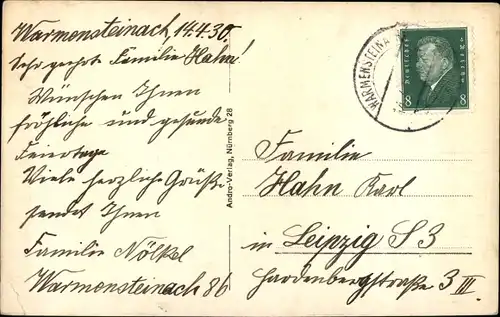 Warmensteinach, 14.4.30.
Sehr geehrte Familie Hahn!
Wünschen Ihnen
fröhliche und gesunde
Feiertage
Viele herzliche Grüße
sendet Ihnen
Familie Nölkel
Warmensteinach 86
Andro-Verlag, Nürnberg 28
WARMENSTEINA
Deutsches Reich
8 8
Familie
Hahn Karl
in Leipzig S3
Hardenbergstraße 3 III.